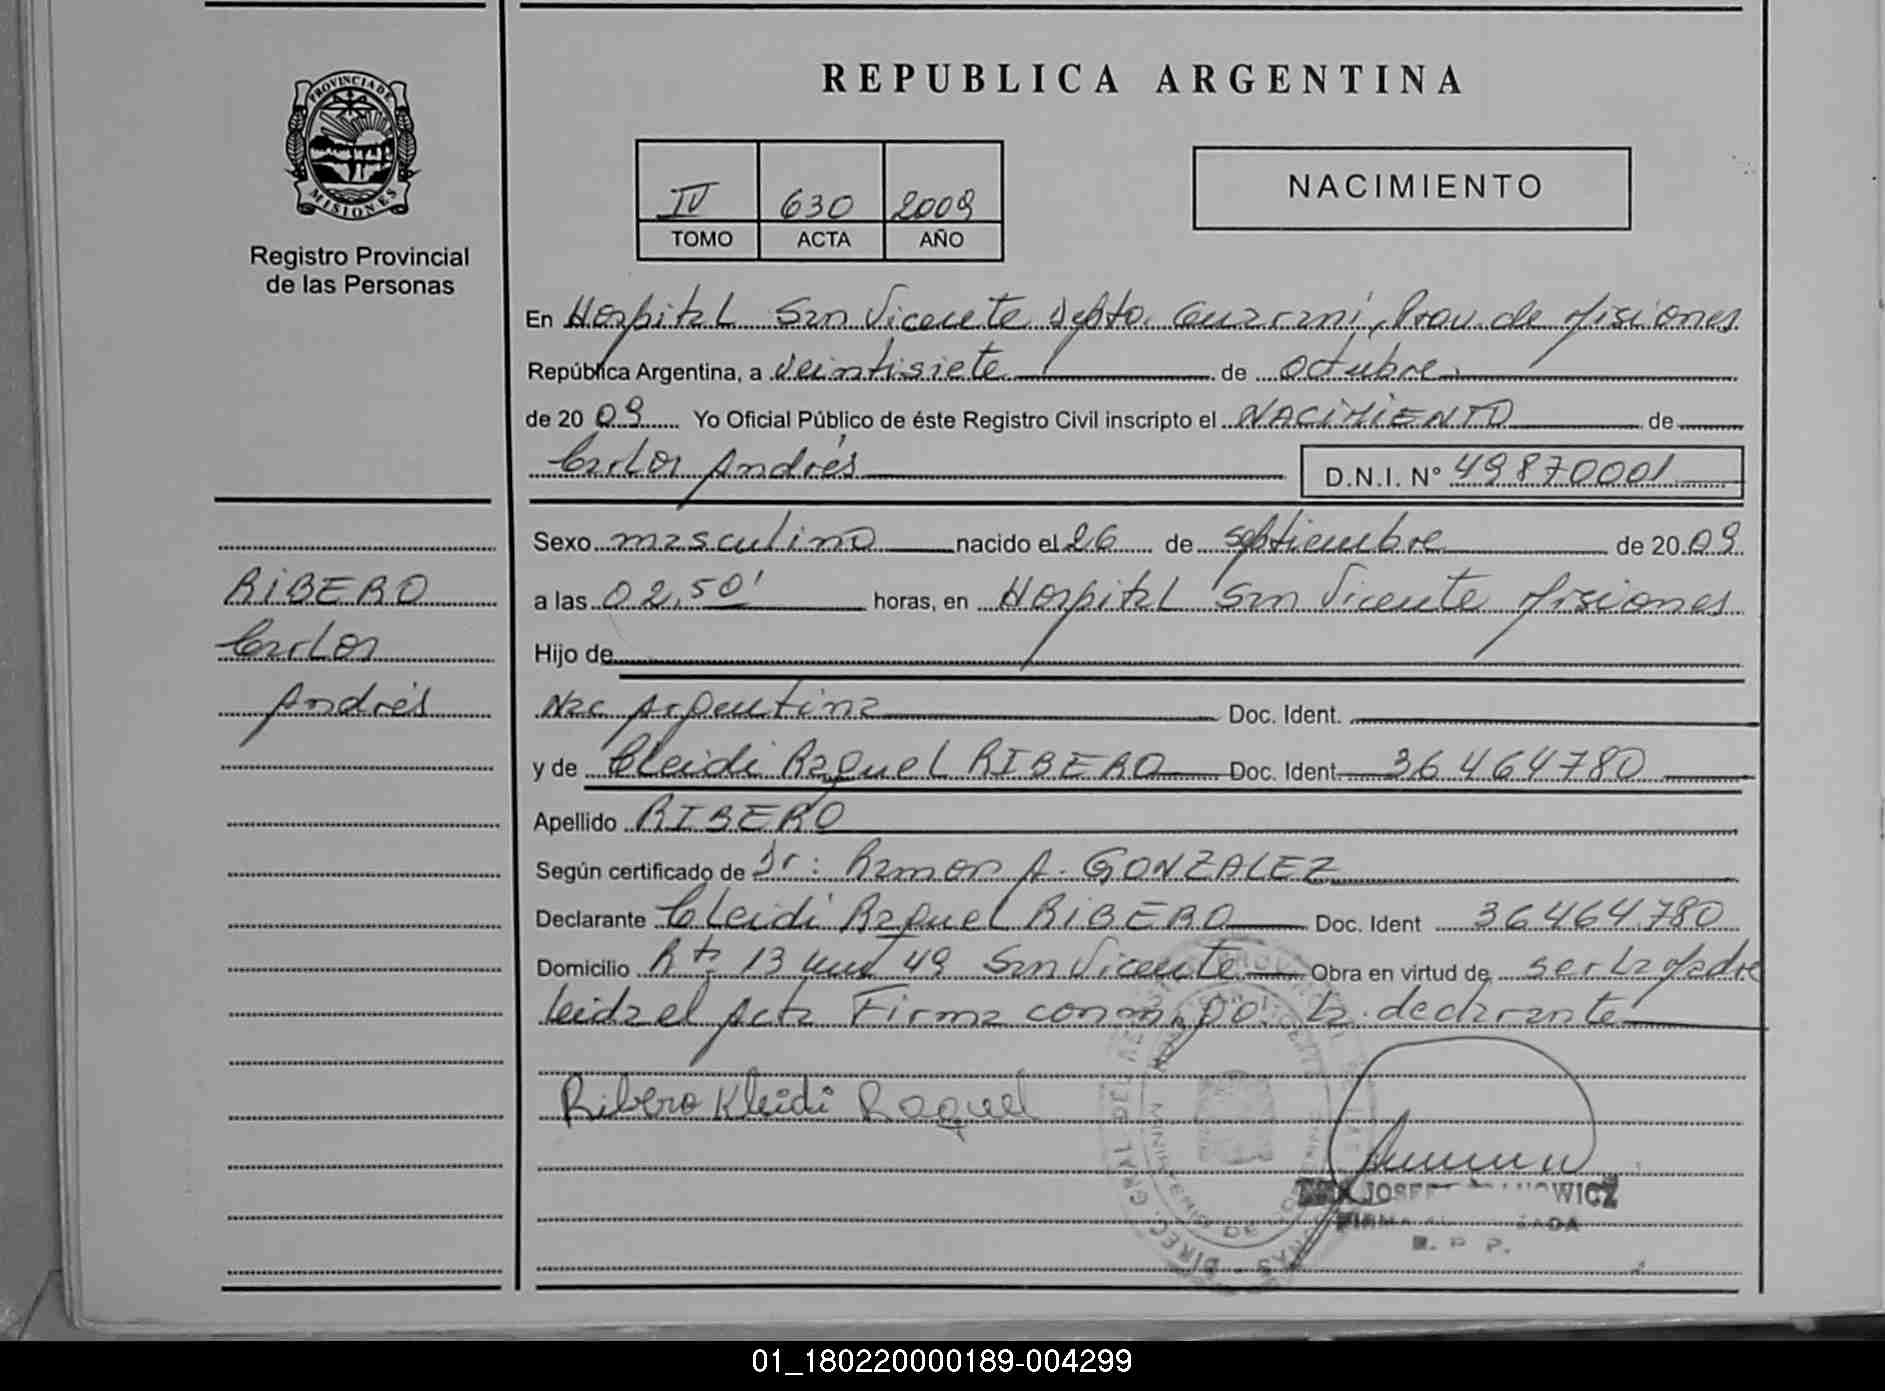 REPUBLICA ARGENTINA
PROVINCIA DE
MISIONES
Registro Provincial
de las Personas
IV 630 2009
TOMO ACTA AÑO
NACIMIENTO
En Hospital San Vicente Dpto. Guaraní, Prov. de Misiones
República Argentina, a veintisiete de octubre
de 20 09 Yo Oficial Público de éste Registro Civil inscripto el NACIMIENTO de
Carlos Andrés D.N.I. Nº 49870001
Sexo masculino nacido el 26 de septiembre de 20 09
a las 02,50' horas, en Hospital San Vicente Misiones
Hijo de
Nac Argentina Doc. Ident.
y de Cleidi Raquel RIBERO Doc. Ident 36464780
Apellido RIBERO
Según certificado de Dr: Ramon A. GONZALEZ
Declarante Cleidi Raquel RIBERO Doc. Ident 36464780
Domicilio Rta 13 49 San Vicente Obra en virtud de ser la Madre
leida el Acta Firma conmigo la declarante
Ribero Kleidi Raquel
RIBERO
Carlos
Andrés
FIRMA
R. P. P.
01_180220000189-004299